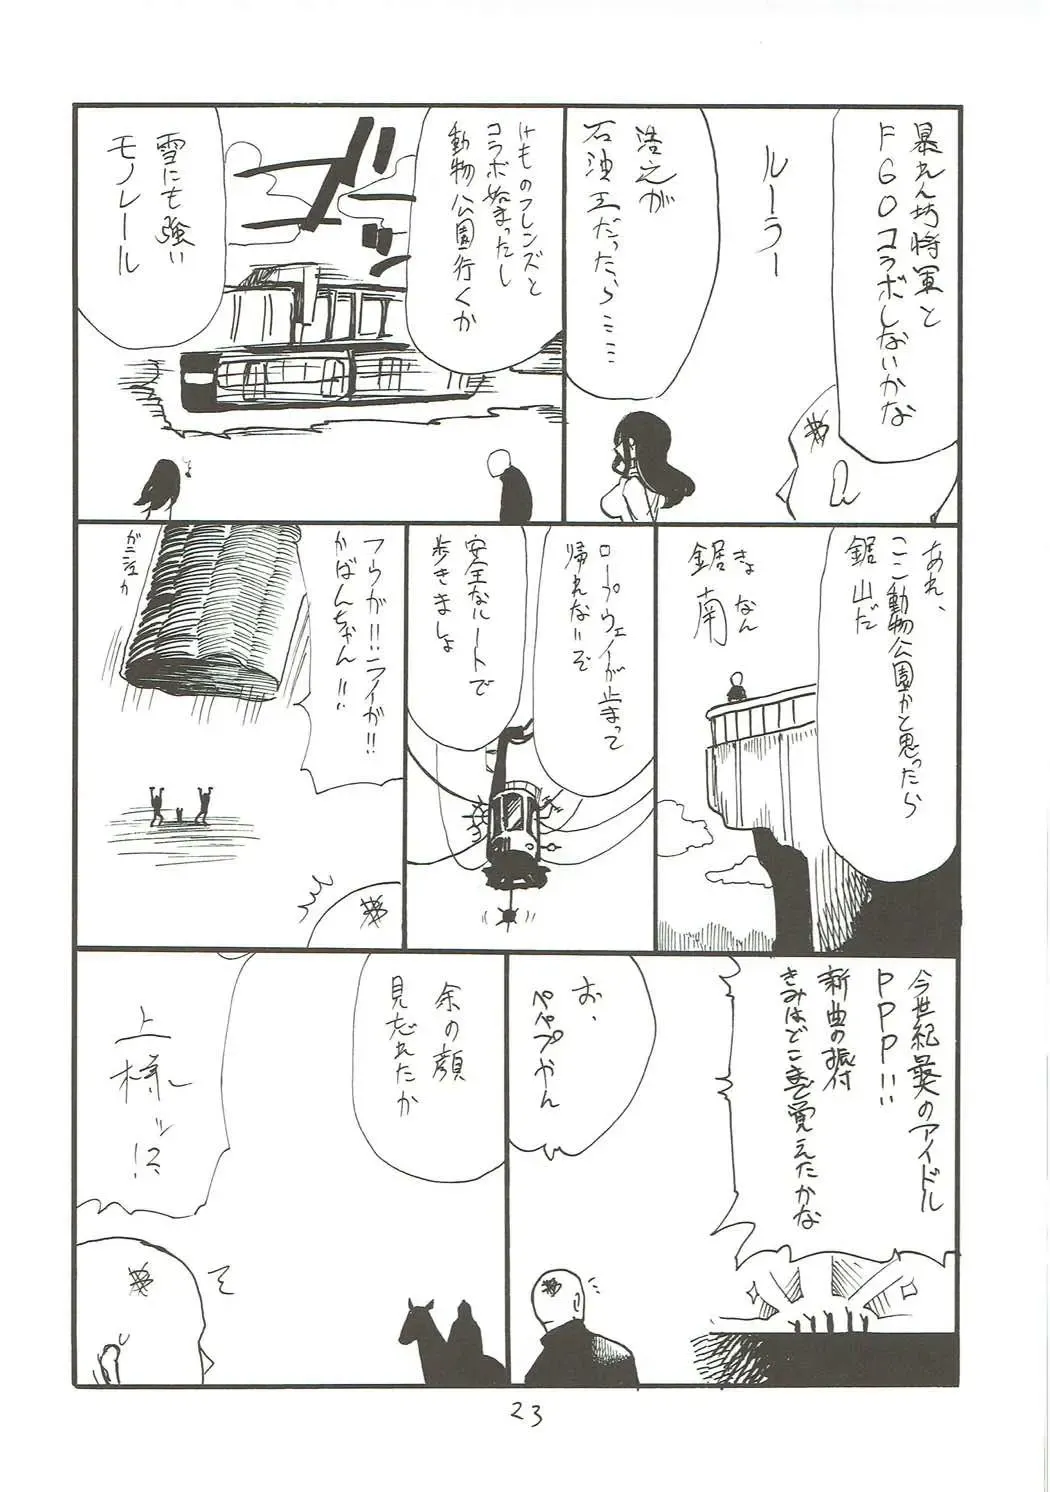 暴れん坊将軍と
FGOコラボしないかな
ルーラー
浩之が
石油王だったら……
けものフレンズと
コラボ始まったし
動物公園行くか
ドドド
雪にも強い
モノレール
あれ、
ここ動物公園かと思ったら
鋸山だ
きょなん
鋸南
ロープウェイが止まって
帰れないぞ
安全なルートで
歩きましょ
フウが!!ライが!!
かばんちゃん!!
今世紀最大のアイドル
PPP!!
新曲の振付
きみはどこまで覚えたかな
お、
ペパプやん
余の顔
見忘れたか
上様ッ!?
23